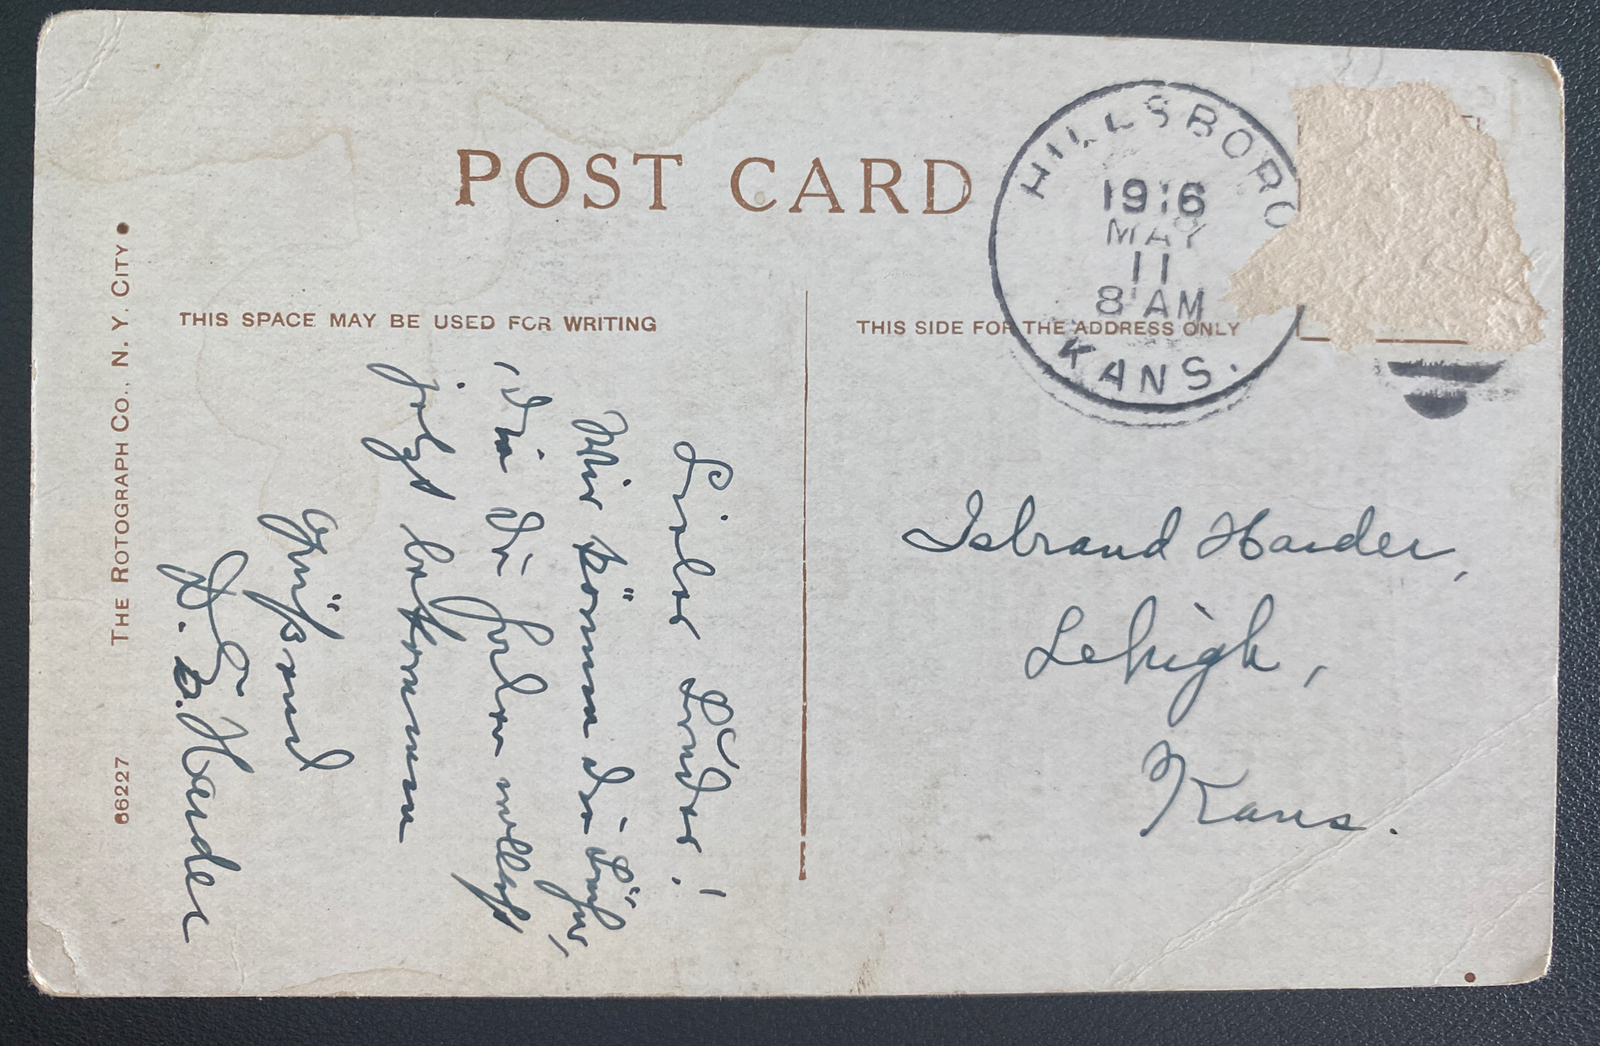 POST CARD
HILLSBORO
1916
MAY
11
8 AM
KANS.
THIS SPACE MAY BE USED FOR WRITING
THIS SIDE FOR THE ADDRESS ONLY
THE ROTOGRAPH CO., N. Y. CITY
66227
Lieber Bruder!
Wir können die Bücher,
die Du haben
jetzt bekommen
Grüßend
D. E. Harder
Isbrand Harder,
Lehigh,
Kans.